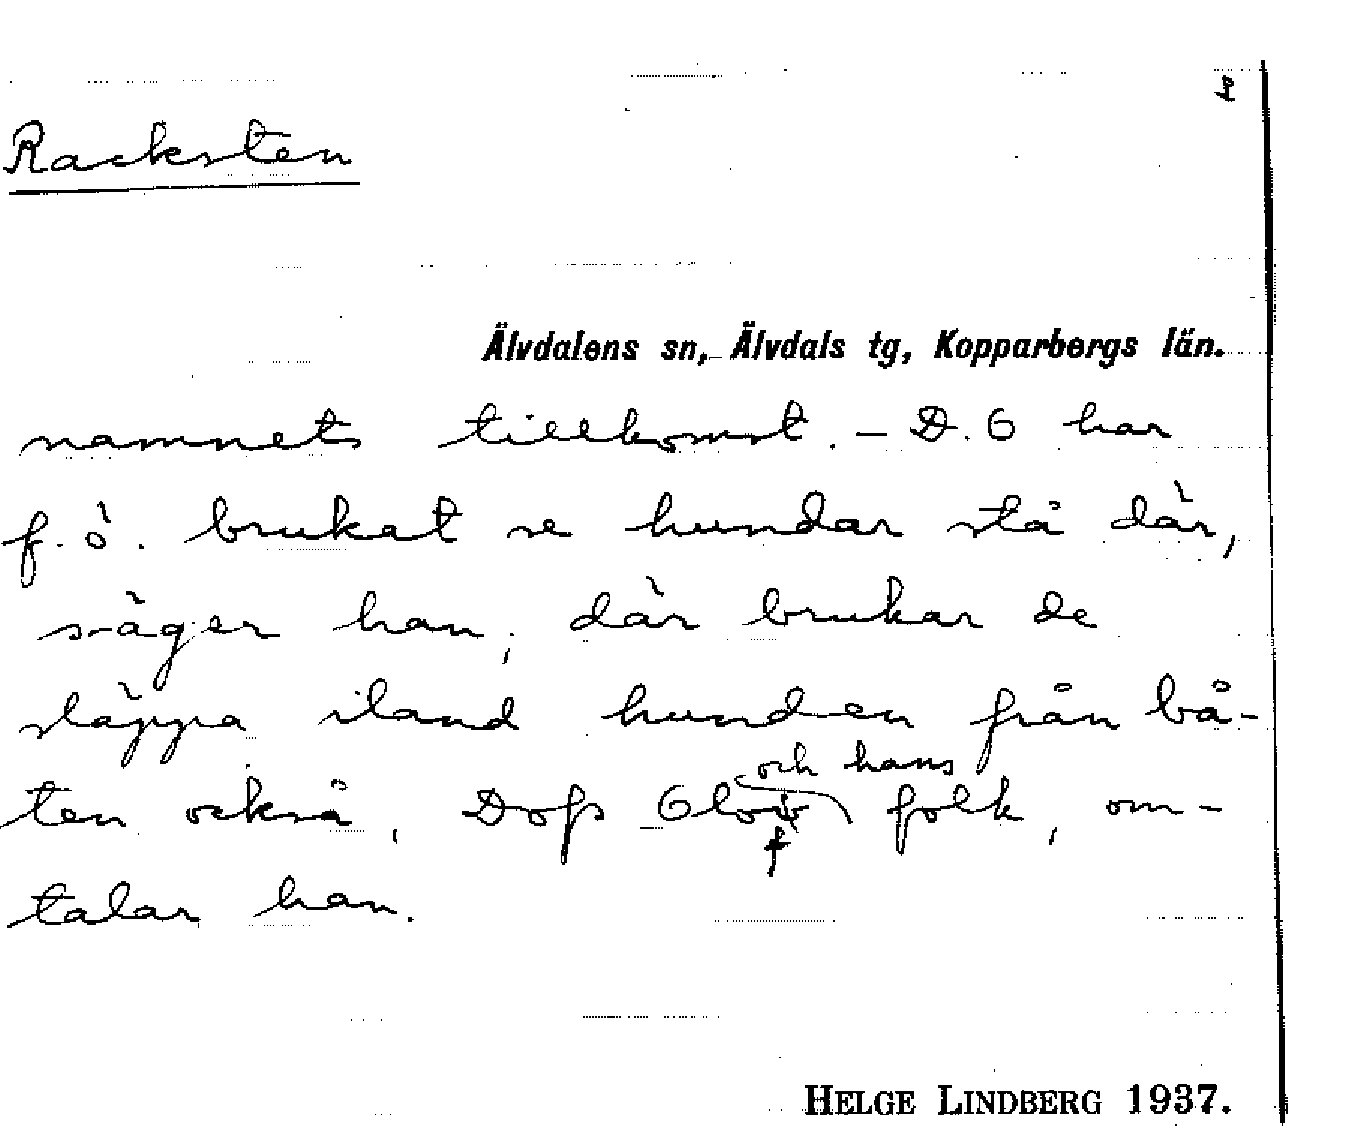 Racksten
Älvdalens sn, Älvdals tg, Kopparbergs län.
namnets tillkomst. – D. O har
f. ö. brukat se hundar stå där,
säger han; där brukar de
släppa iland hunden från bå-
och hans
ten också, Dofs Olof folk, om-
talar han.
HELGE LINDBERG 1937.